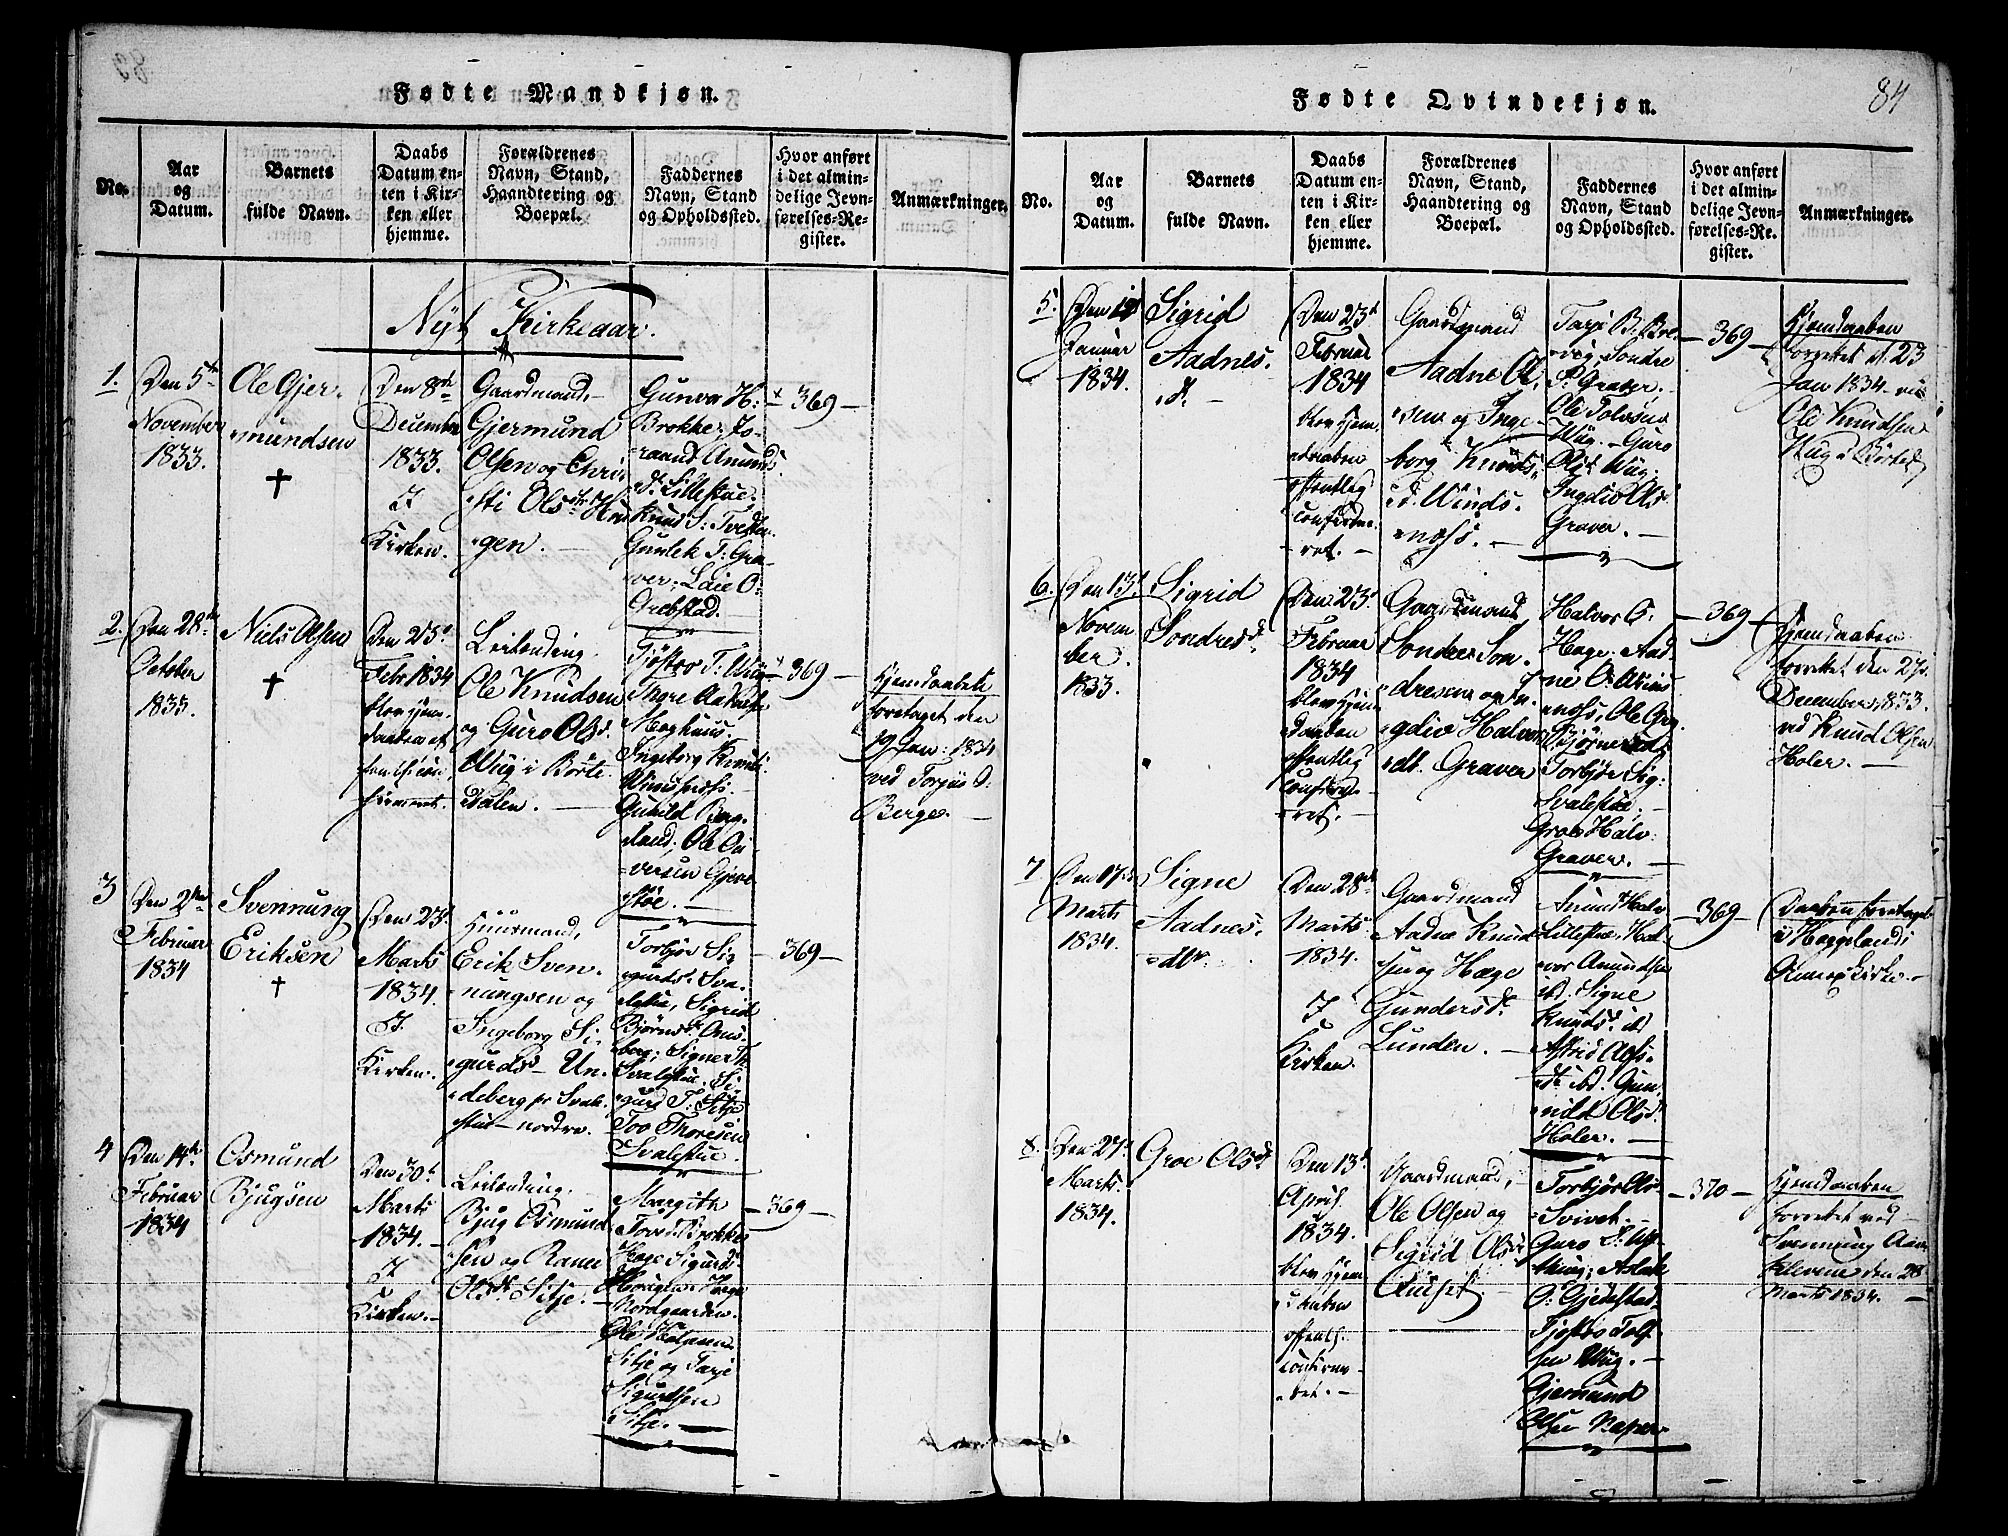 Fødte Mandkjøn.
No.
Aar
og
Datum.
Barnets
fulde Navn.
Daabs
Datum en-
ten i Kir-
ken eller
hjemme.
Forældrenes
Navn, Stand,
Haandtering og
Boepæl.
Faddernes
Navn, Stand
og Opholdssted.
Hvor anført
i det almin-
delige Jevn-
førelses-Re-
gister.
Anmærkninger.
Nyt Kirkeaar.
1.
Den 5te
November
1833.
Ole Gjer-
mundsen
Den 8de
December
1833.
I
Kirken.
Gaardmand,
Gjermund
Olsen og Chri-
sti Olsdtr
gen.
Gunvor H:
Brokke, Jo-
raand Amunds
dr Lillestue.
Knud S: Tveiten.
Gunlek T: Gra-
ver, Laie O:
Grebstad.
369
2.
Den 28de
October
1833.
Niels Olsen
Den 23d
Febr 1834
blev hjem-
Leilending
Ole Knudsen
og Guro Olsd.
Wiig i Børte
dalen.
Ingeborg Knuds
Gunild Berg-
land, Ole On-
versen Gjeve-
støe.
369
Hjemdaabete
foretaget den
19 Jan: 1834
ved Torjus O:
Berge.
3
Den 2den
Februar
1834
Svennung
Eriksen
Den 23d
Marts
1834.
I
Kirken.
Huusmand,
Erik Sven-
nungsen og
Ingeborg Si-
gurds Un-
deberg
stue nordre.
Torbjør Si-
gurds Sva-
lestue, Sigrid
Bjørnsd. Oms-
berg, Signe Th
Svalestue, Si-
gurd T: Sitje
Tov Thoresen
Svalestue.
369
4
Den 14de
Februar
1834
Osmund
Bjugsen
Den 30d
Marts
1834.
I
Kirken.
Leilending
Bjug Osmund
sen og Ranei
Olsdr Sitje.
Margith
Tovsd Brokke
Hæge Sigurds
Nordgaarden.
Sitje og Tarje
Sigurdsen
Sitje.
369
Fødte Qvindekjøn.
84
No.
Aar
og
Datum.
Barnets
fulde Navn.
Daabs
Datum en-
ten i Kir-
ken eller
hjemme.
Forældrenes
Navn, Stand,
Haandtering og
Boepæl.
Faddernes
Navn, Stand
og Opholdssted.
Hvor anført
i det almin-
delige Jevn-
førelses-Re-
gister.
Anmærkninger.
5.
Januar
1834.
Sigrid
Aadnes-
d.
Den 23d
Februar
1834
blev hjem-
medaaben
offentlig
confirme-
ret.
Gaardmand
Aadne Ol-
sen og Inge-
borg Knuds-
d. Winds-
næss.
Tarje B. Bre-
vig, Sondre
P: Graver,
Ole Tolvsen
Wiig. Guro
Olsd Wiig,
Ingdio Ols
Graver.
369
Hjemdaaben
forrettet d. 23
Jan 1834 ved
Ole Knudsen
Wiig i Børted
6.
Den 13d
Novem
ber.
1833.
Sigrid
Sondresd.
Den 23d
Februar
1834
blev hjem
daaben
offentlig
confirme-
ret.
Gaardmand,
Sonder Son-
dresen og In-
gdiv Halvors
dt. Graver
Halvor O.
Hage, Aad-
ne O: Winds
næss, Ole Greg.
Torbjør Sig:
Svalestue.
Groe Halv:
Graver.
369
Hjemdaaben
forrettet den 27d
December 1833.
ved Knud Olsen
Holer.
7
Den 17de
Marts
1834.
Signe
Aadnes-
dtr.
Den 28de
Marts
1834.
I
Kirken.
Gaardmand
Aadne Knud
sen og Hæge
Gundersd.
Lunden.
Amund Halv
Lillestue, Hal-
vor Amundsen
ibd. Signe
Knudsd. ibd
Astrid Aads-
dr ibd. Gun-
nild Olsd
Holer.
369
Daaben foretaget
i Høgelandi
Annex Kirke.
8.
Den 27d
Marts
1834.
Groe Olsd
Den 13d
April
1834.
blev hjem
daaben
offentl.
confirme-
ret.
Gaardmand,
Ole Olsen og
Sigrid Olsd
Torbjør Ols
Svivet.
Guro
Wiig, Aslak
O: Gjedestad.
Tjøstov Tolf
sen Wiig.
Gjermund
Olsen
370
Hjemdaaben
forrettet ved
Svennung Aan
Kleveni den 28
Marts 1834.